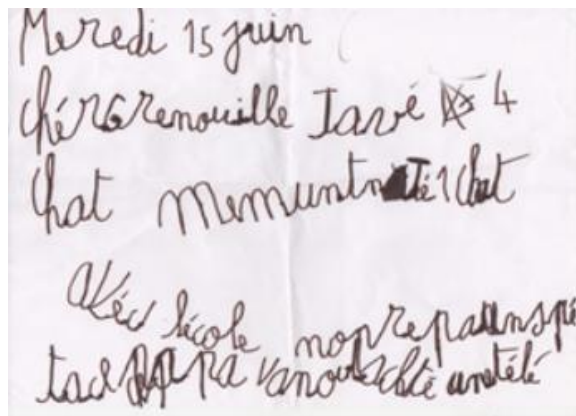 Meredi 15 juin
chér Grenouille Javé 4
chat memuntn té 1 chat
avéc lécole noprepauns pé
tacl papa vanou achté unetélé